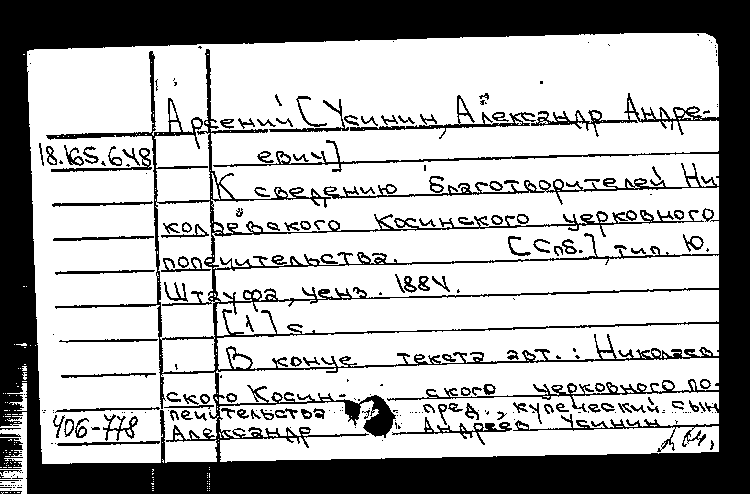 Арсений [Усинин, Александр Андре-
18.165.648 евич]
К сведению благотворителей Ни-
колаевского Косинского церковного
попечительства. [Спб.], тип. Ю.
Штауфа, ценз. 1884.
[1] с.
В конце текста авт.: Николаев-
ского Косин- ского церковного по-
печительства пред., купеческий сын
406-778 Александр Андреев Усинин